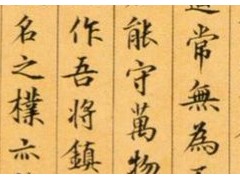 常無為
能守萬物
作吾將鎮
名之樸亦